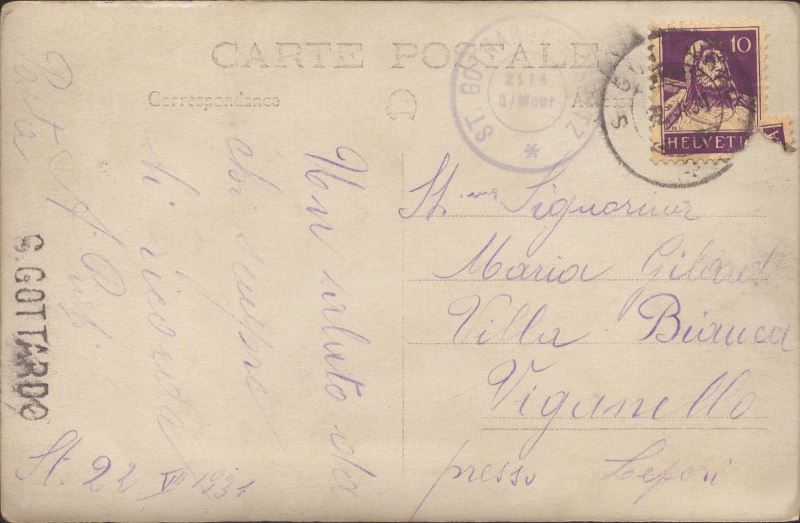 CARTE POSTALE
Correspondance
Adresse
ST. GOTTHARD
2114
ü/Meer
*
10
HELVETI
S. GOTTARDO
Un saluto da
chi sempre
ti ricorda
St. 22 VII 1931
St.ma Signorina
Maria Gilardi
Villa Bianca
Viganello
presso Lepori